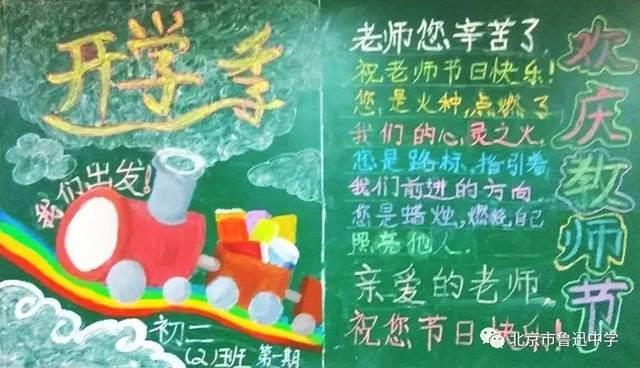 开学季
我们出发!
初二
(2)班 第一期
老师您辛苦了
祝老师节日快乐!
您是火种,点燃了
我们的心灵之火.
您是路标,指引着
我们前进的方向.
您是蜡烛,燃烧自己
照亮他人.
亲爱的老师,
祝您节日快乐!
欢庆教师节
北京市鲁迅中学